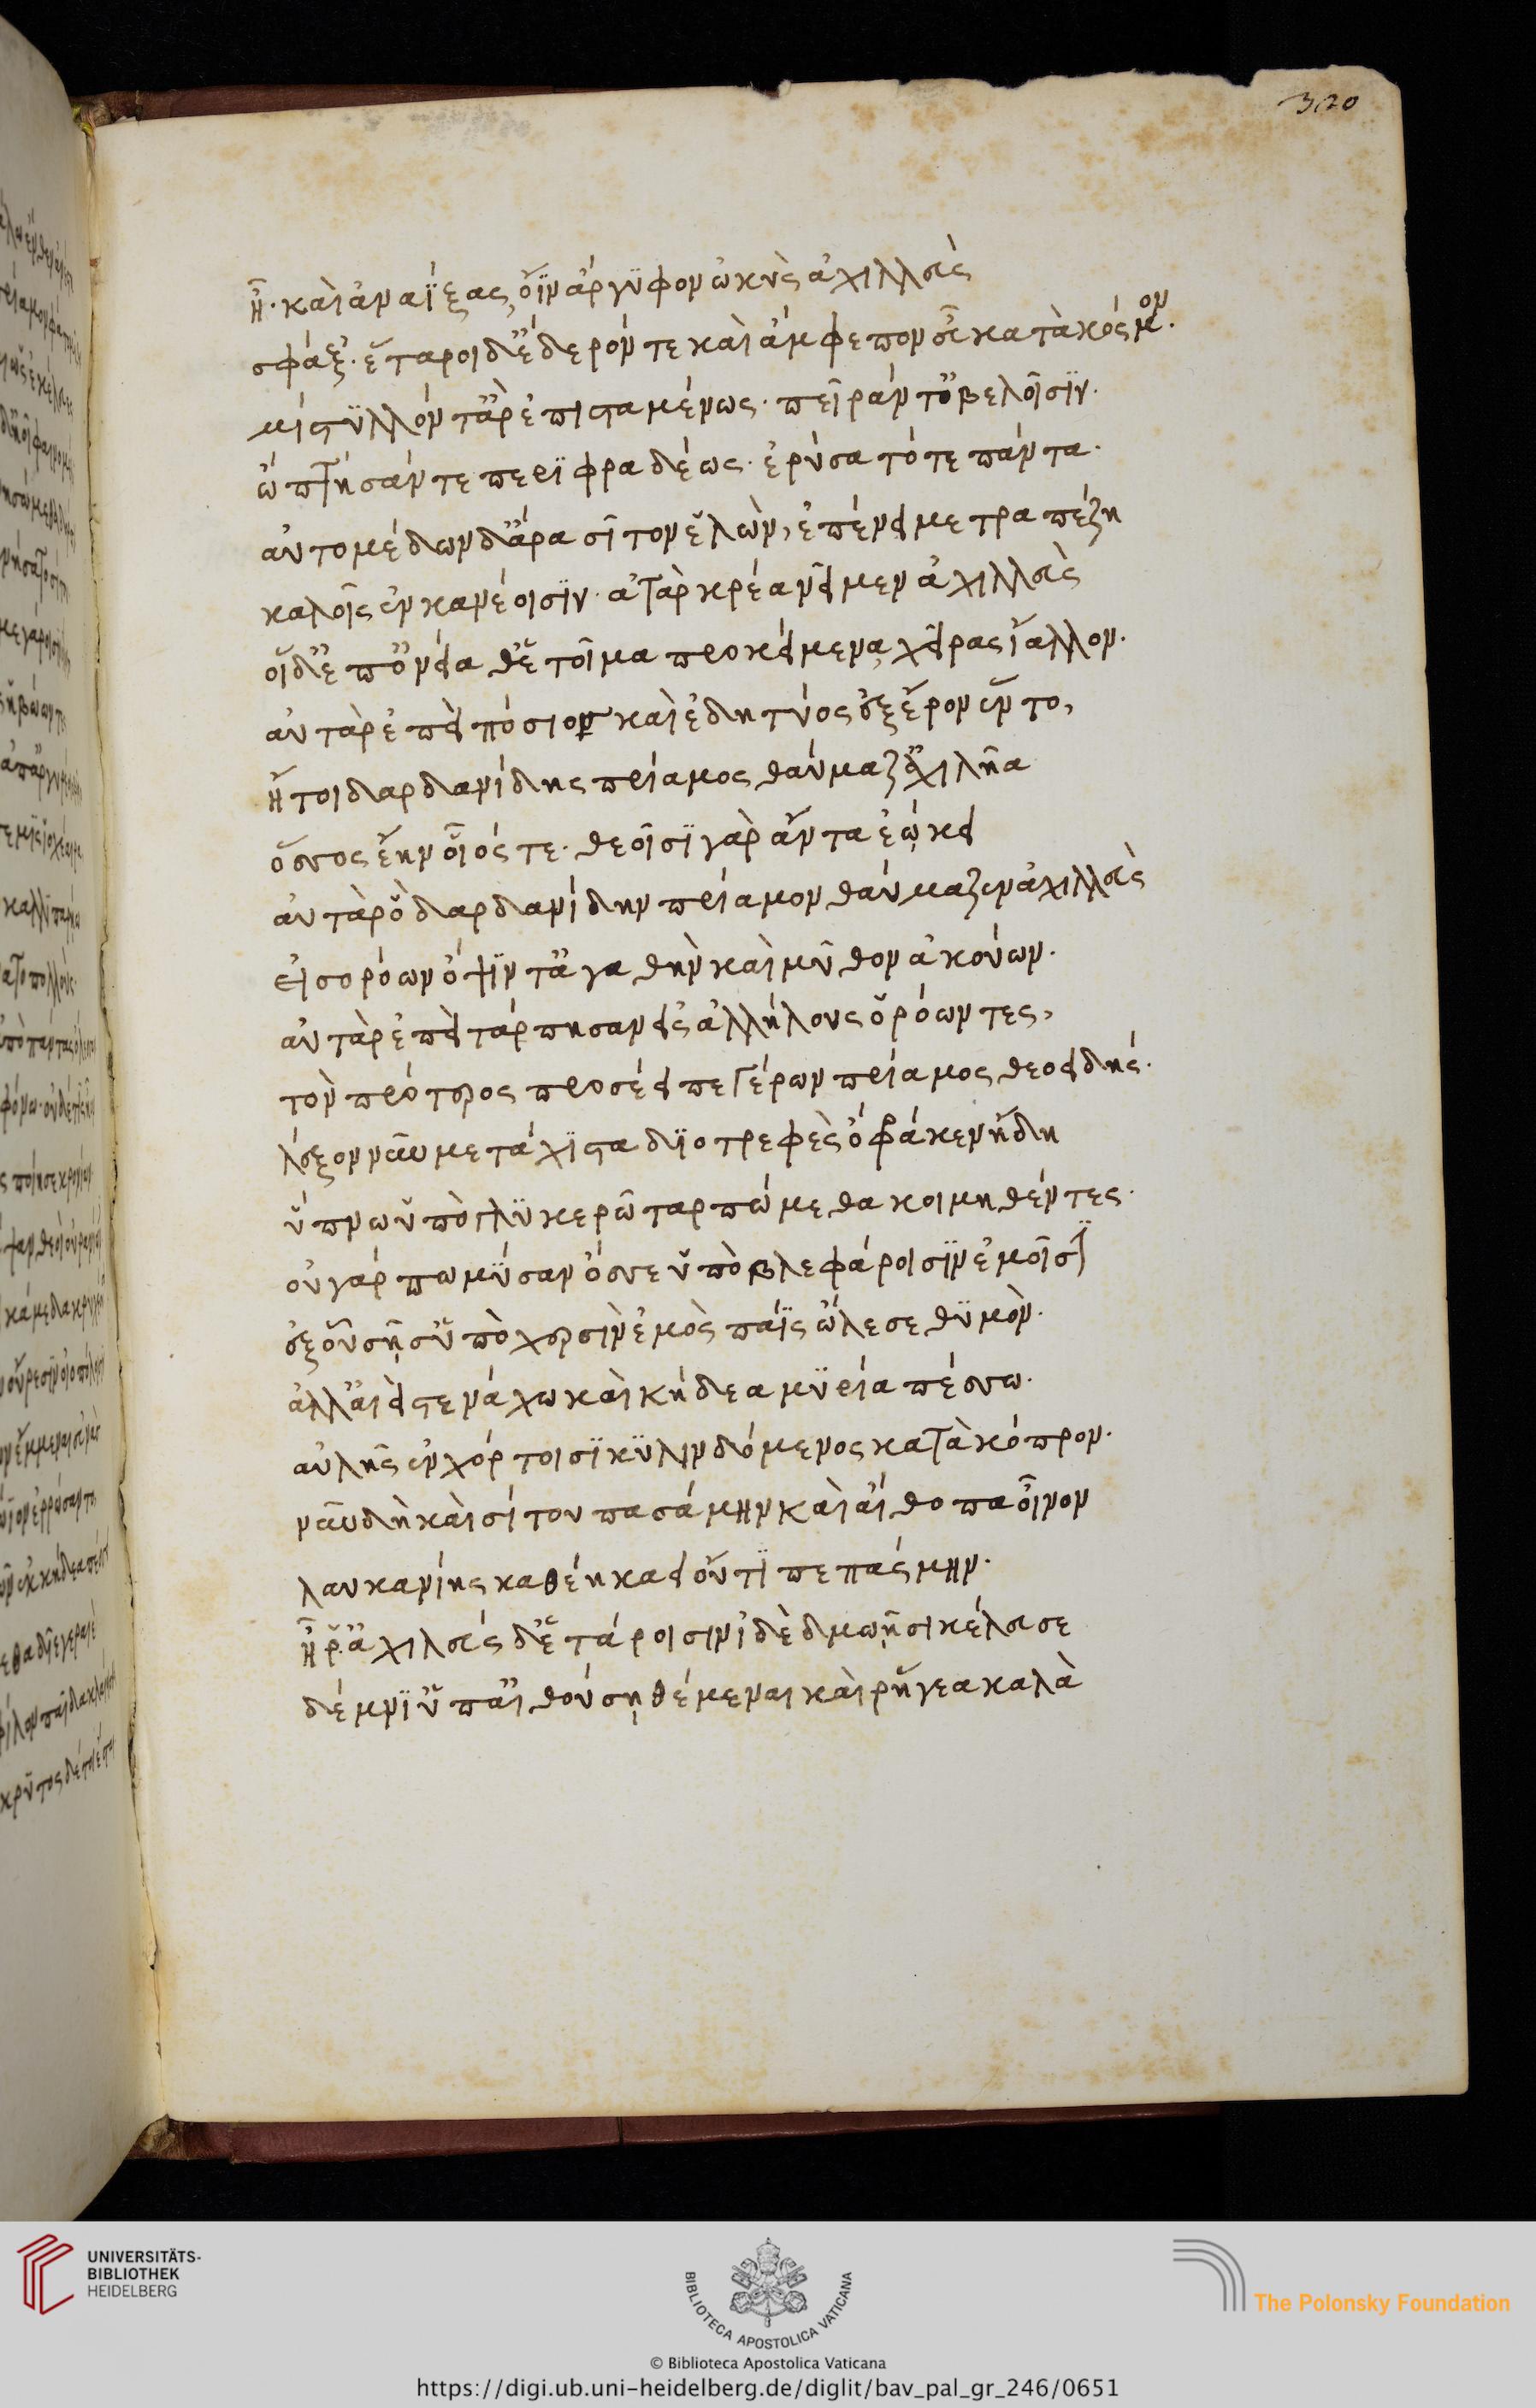 320
ἦ· καὶ ἀναΐξας, ὄϊν ἄργυφον ὠκὺς ἀχιλλεὺς
σφάξ'· ἕταροι δ' ἔδερόν τε καὶ ἄμφεπον εὖ κατὰ κόσμον.
μίστυλλόν τ' ἄρ' ἐπισταμένως· πεῖράν τ' ὀβελοῖσιν.
ὤπτησάν τε περιφραδέως· ἐρύσαντό τε πάντα·
αὐτομέδων δ' ἄρα σῖτον ἑλὼν, ἐπένειμε τραπέζῃ
καλοῖς ἐν κανέοισιν· ἀτὰρ κρέα νεῖμεν ἀχιλλεὺς
οἱ δ' ἐπ' ὀνείαθ' ἑτοῖμα προκείμενα, χεῖρας ἴαλλον.
αὐτὰρ ἐπεὶ πόσιος καὶ ἐδητύος ἐξ ἔρον ἕντο,
ἤτοι δαρδανίδης πρίαμος θαύμαζ' ἀχιλῆα
ὅσσος ἔην οἷός τε· θεοῖσι γὰρ ἄντα ἐῴκει
αὐτὰρ ὃ δαρδανίδην πρίαμον θαύμαζεν ἀχιλλεὺς
εἰσορόων ὄψιν τ' ἀγαθὴν καὶ μῦθον ἀκούων.
αὐτὰρ ἐπεὶ τάρπησαν ἐς ἀλλήλους ὁρόωντες,
τὸν πρότερος προσέειπε γέρων πρίαμος θεοειδής.
λέξον νῦν με τάχιστα διοτρεφὲς ὄφρά κεν ἤδη
ὕπνω ὕπο γλυκερῶ ταρπώμεθα κοιμηθέντες·
οὐ γάρ πω μύσαν ὄσσε ὑπὸ βλεφάροισιν ἐμοῖσιν
ἐξ οὗ σῇς ὑπὸ χερσὶν ἐμὸς πάϊς ὤλεσε θυμὸν.
ἀλλ' αἰεὶ στενάχω καὶ κήδεα μυρία πέσσω.
αὐλῆς ἐν χόρτοισι κυλινδόμενος κατὰ κόπρον.
νῦν δὴ καὶ σίτου πασάμην καὶ αἴθοπα οἶνον
λαυκανίης καθέηκα· οὔτι πεπάσμην.
ἦ ῥ' ἀχιλεὺς δ' ἑτάροισιν ἰδὲ δμωῇσι κέλευσε
δέμνι' ὑπ' αἰθούσῃ θέμεναι καὶ ῥήγεα καλὰ
UNIVERSITÄTS-
BIBLIOTHEK
HEIDELBERG
BIBLIOTECA APOSTOLICA VATICANA
The Polonsky Foundation
© Biblioteca Apostolica Vaticana
https://digi.ub.uni-heidelberg.de/diglit/bav_pal_gr_246/0651